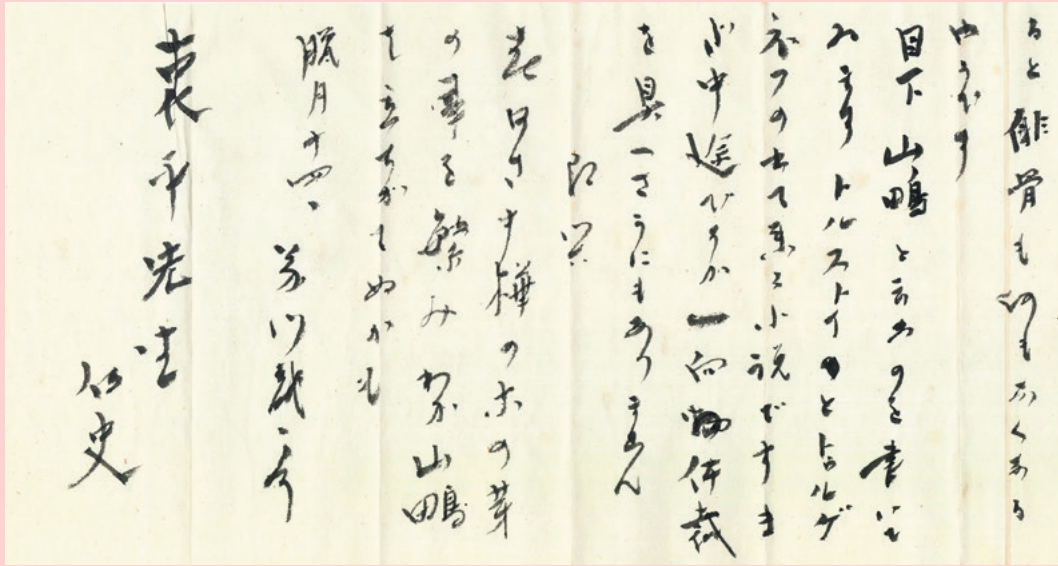 ると俳骨も何もなくなる
やうです
目下山鴫と云ふのを書いて
ゐます トルストイとトルゲ
ネフの出て来る小説ですま
だ中途ですが一向体裁
を具へさうにもありません
即興
春日さす樺の木の芽
の 繁み 山鴫
立ちがてぬかも
臘月十四、 芥川龍之介
先生
侍史